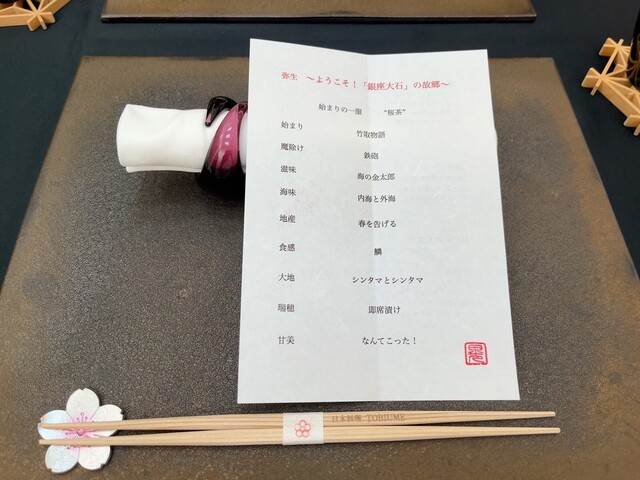 弥生　～ようこそ！「銀座大石」の故郷～
始まりの一服　“桜茶”
始まり　竹取物語
魔除け　鉄砲
滋味　海の金太郎
海味　内海と外海
地産　春を告げる
食感　鱗
大地　シンタマとシンタマ
瑞穂　即席漬け
甘美　なんてこった！
日本料理 TOBIUME